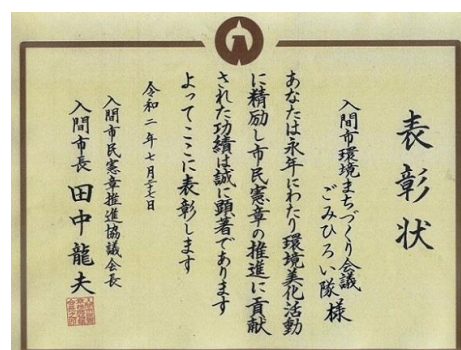 表彰状
入間市環境まちづくり会議
ごみひろい隊 様
あなたは永年にわたり環境美化活動
に精励し市民憲章の推進に貢献
された功績は誠に顕著であります
よってここに表彰します
令和二年七月十七日
入間市民憲章推進協議会長
入間市長 田中龍夫